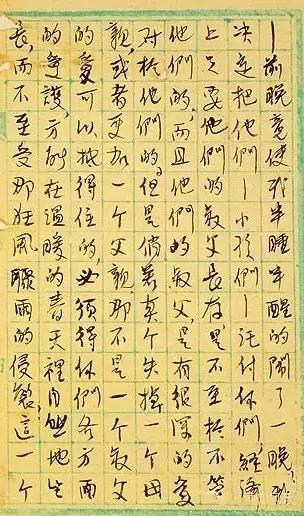 —前晚竟使我半睡半醒的鬧了一晚,我
决定把他們—小孩們—託付你們,經濟
上只要他們的叔父長存,是不至於不管
他們的,而且他們的叔父,是有很深的愛
对於他們的。但是倘若真个失掉一个母
親,或者更加一个父親,那不是一个叔父
的愛可以抵得住的,必須得你們各方面
的愛護,方能在溫暖的春天裡自然地生
長,而不至受那狂風驟雨的侵襲,這一个